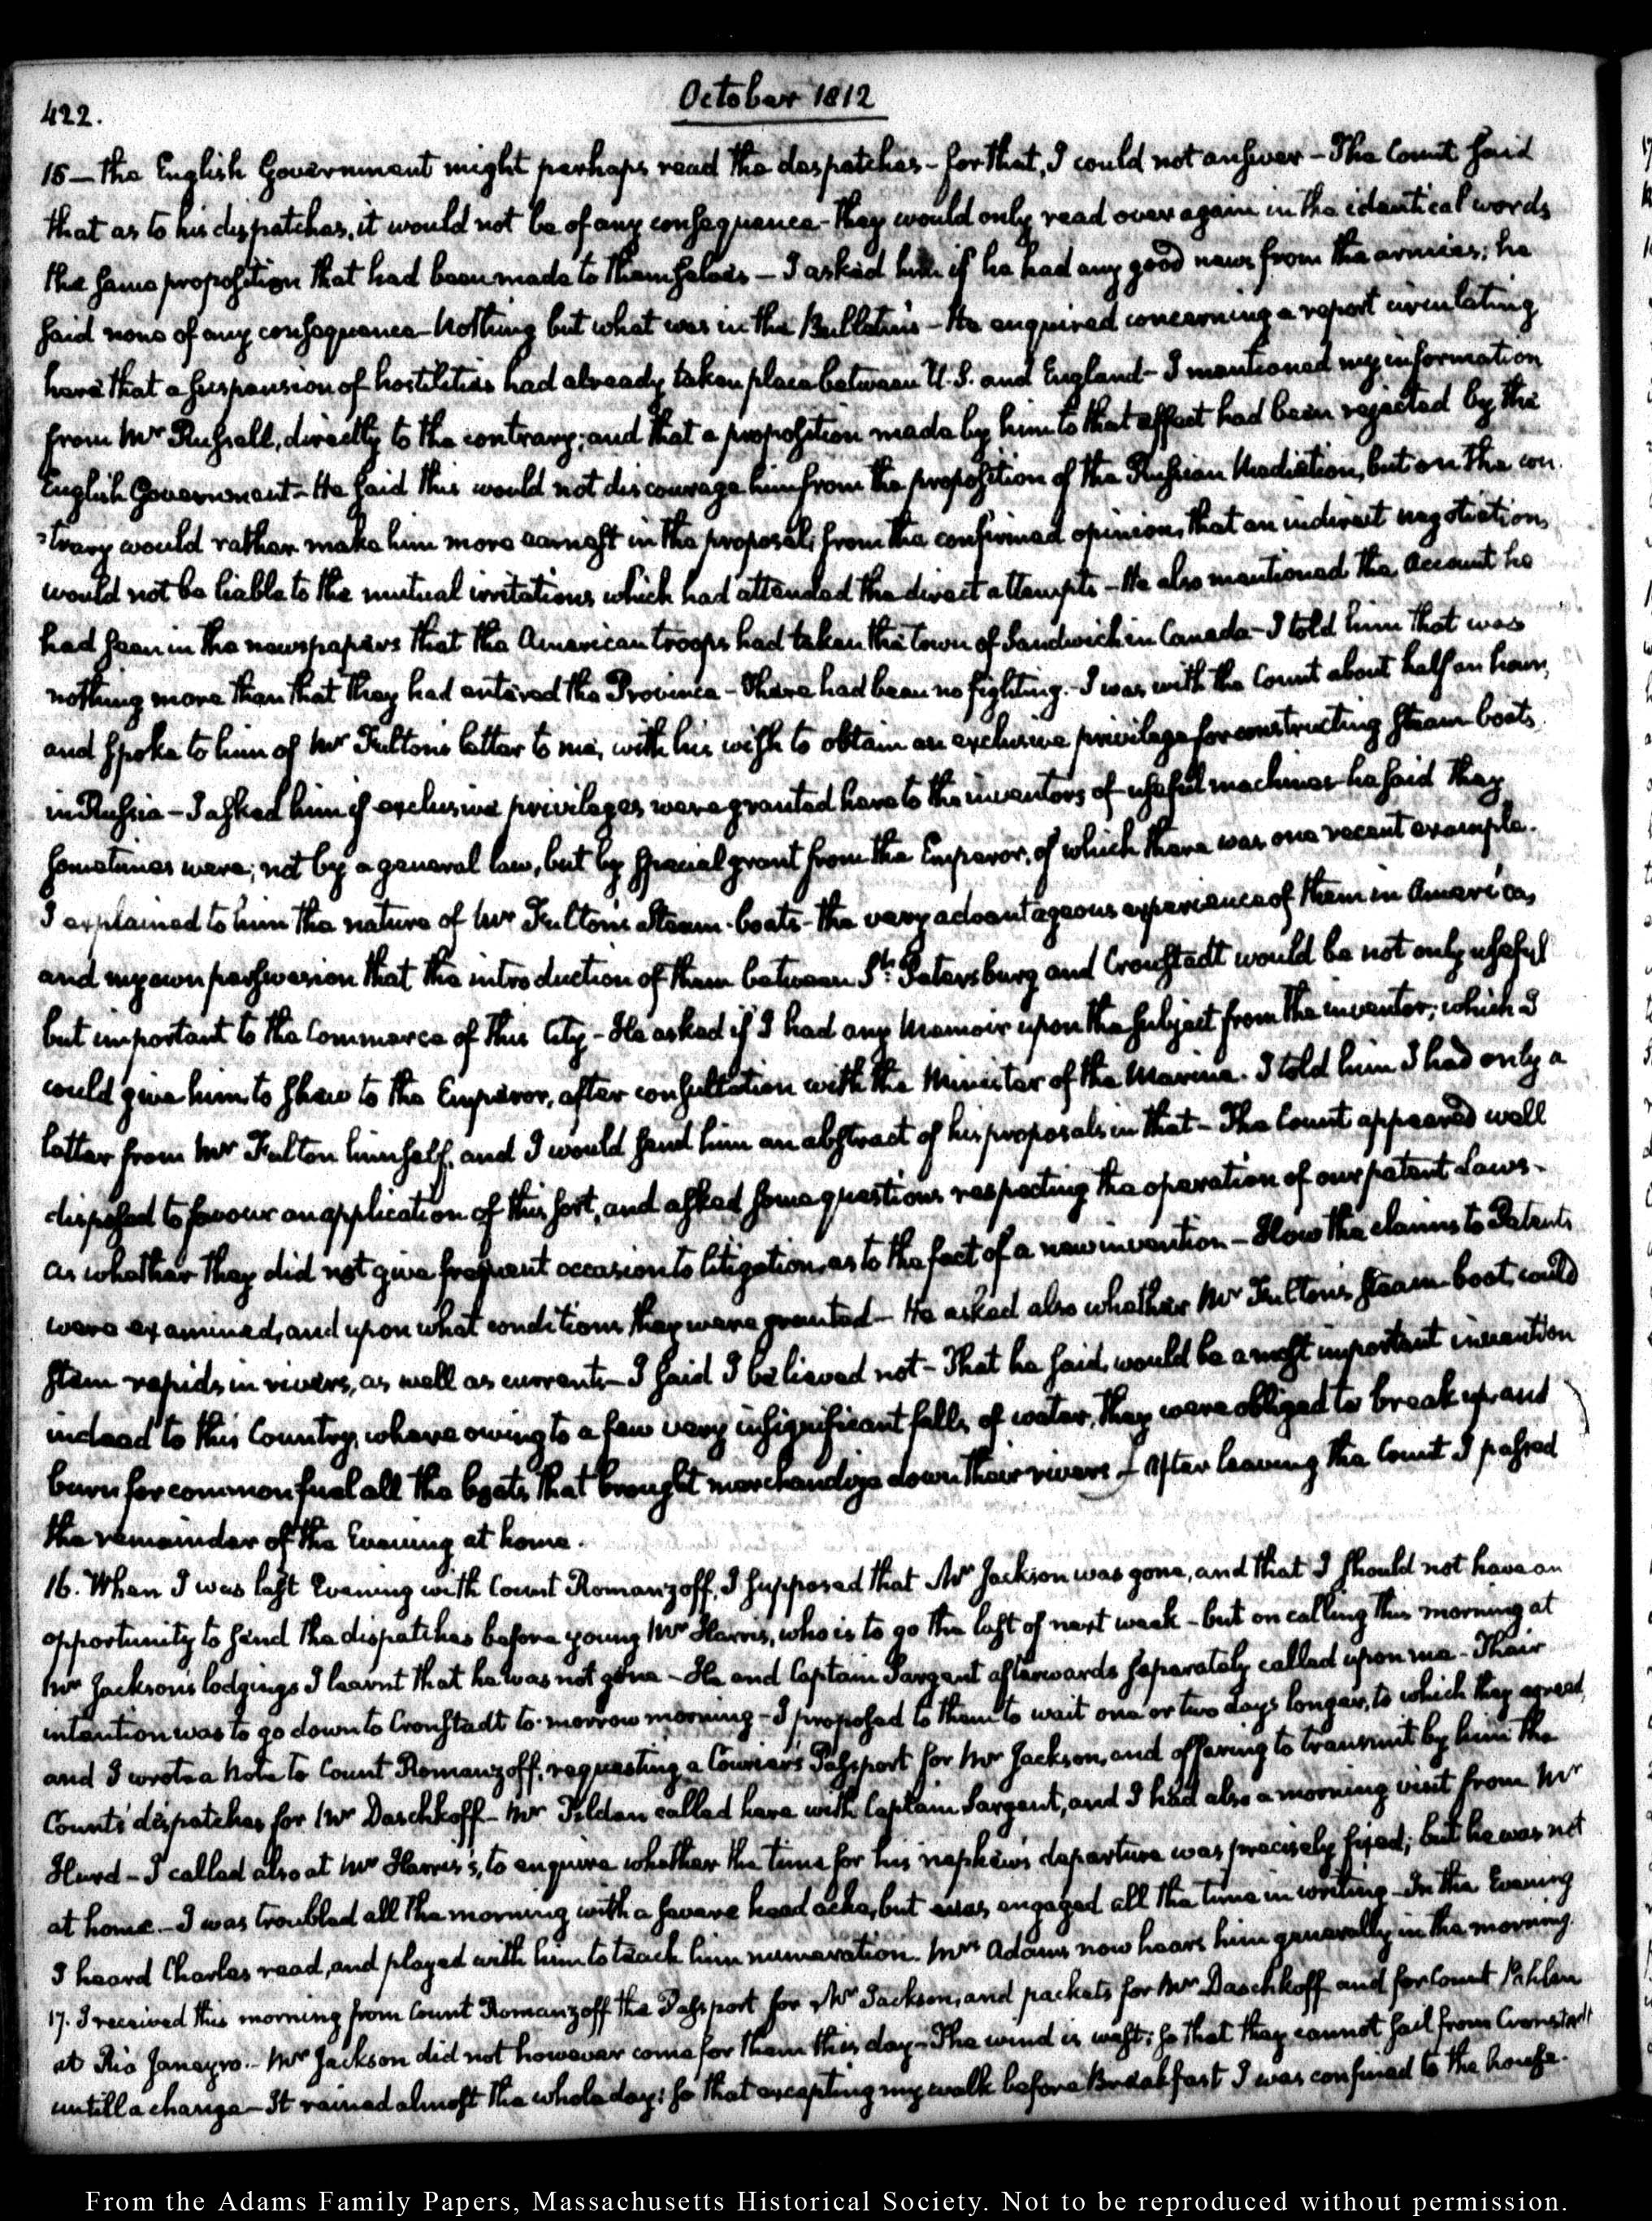 422.
October 1812
15 — the English Government might perhaps read the despatches - for that, I could not answer - The Count said
that as to his dispatches, it would not be of any consequence - They would only read over again in the identical words
the same proposition that had been made to themselves — I asked him if he had any good news from the armies; he
said none of any consequence - Nothing but what was in the Bulletins - He enquired concerning a report circulating
here that a suspension of hostilities had already taken place between U.S. and England - I mentioned my information
from Mr Russell, directly to the contrary; and that a proposition made by him to that effect had been rejected by the
English Government - He said this would not discourage him from the proposition of the Russian Mediation, but on the con-
-trary would rather make him more earnest in the proposal; from the confirmed opinion, that an indirect negotiation,
would not be liable to the mutual irritations which had attended the direct attempts - He also mentioned the Account he
had seen in the newspapers that the American troops had taken the town of Sandwich in Canada - I told him that was
nothing more than that they had entered the Province - There had been no fighting. - I was with the Count about half an hour,
and spoke to him of Mr Fulton's letter to me, with his wish to obtain an exclusive privilege for constructing Steam-boats
in Russia - I asked him if exclusive privileges were granted here to the inventors of useful machines - he said they
sometimes were; not by a general law, but by special grant from the Emperor, of which there was one recent example.
I explained to him the nature of Mr Fulton's Steam-boats - the very advantageous experience of them in America,
and my own perswasion that the introduction of them between St. Petersburg and Cronstadt would be not only useful
but important to the Commerce of this City - He asked if I had any Memoir upon the subject from the inventor; which I
could give him, to shew to the Emperor, after consultation with the Minister of the Marine. I told him I had only a
letter from Mr Fulton himself, and I would send him an abstract of his proposals in that - The Count appeared well
disposed to favour an application of this sort, and asked some questions respecting the operation of our patent Laws -
as whether they did not give frequent occasion to litigation, as to the fact of a new invention - How the claims to Patents
were examined, and upon what conditions they were granted - He asked also whether Mr Fulton's Steam-boat, could
stem rapids in rivers, as well as currents - I said I believed not - That he said, would be a most important invention
indeed to this Country, where owing to a few very insignificant falls of water, they were obliged to break up and
burn for common fuel all the boats that brought merchandize down their rivers - After leaving the Count I passed
the remainder of the Evening at home.
16. When I was last Evening with Count Romanzoff, I supposed that Mr Jackson was gone, and that I should not have an
opportunity to send the dispatches before young Mr Harris, who is to go the last of next week - but on calling this morning at
Mr Jackson's lodgings I learnt that he was not gone - He and Captain Sargent afterwards separately called upon me - Their
intention was to go down to Cronstadt to-morrow morning - I proposed to them to wait one or two days longer, to which they agreed,
and I wrote a Note to Count Romanzoff, requesting a Courier's Passport for Mr Jackson, and offering to transmit by him the
Count's dispatches for Mr Daschkoff - Mr Tilden called here with Captain Sargent, and I had also a morning visit from Mr
Hurd - I called also at Mr Harris's, to enquire whether the time for his nephew's departure was precisely fixed; but he was not
at home - I was troubled all the morning with a severe head ache, but was engaged all the time in writing - In the Evening
I heard Charles read, and played with him to teach him numeration. Mrs Adams now hears him generally in the morning.
17. I received this morning from Count Romanzoff the Passport for Mr Jackson, and packets for Mr Daschkoff and for Count Pahlen
at Rio Janeyro. - Mr Jackson did not however come for them this day - The wind is west; so that they cannot sail from Cronstadt
untill a change - It rained almost the whole day; so that excepting my walk before Breakfast I was confined to the house.
From the Adams Family Papers, Massachusetts Historical Society. Not to be reproduced without permission.